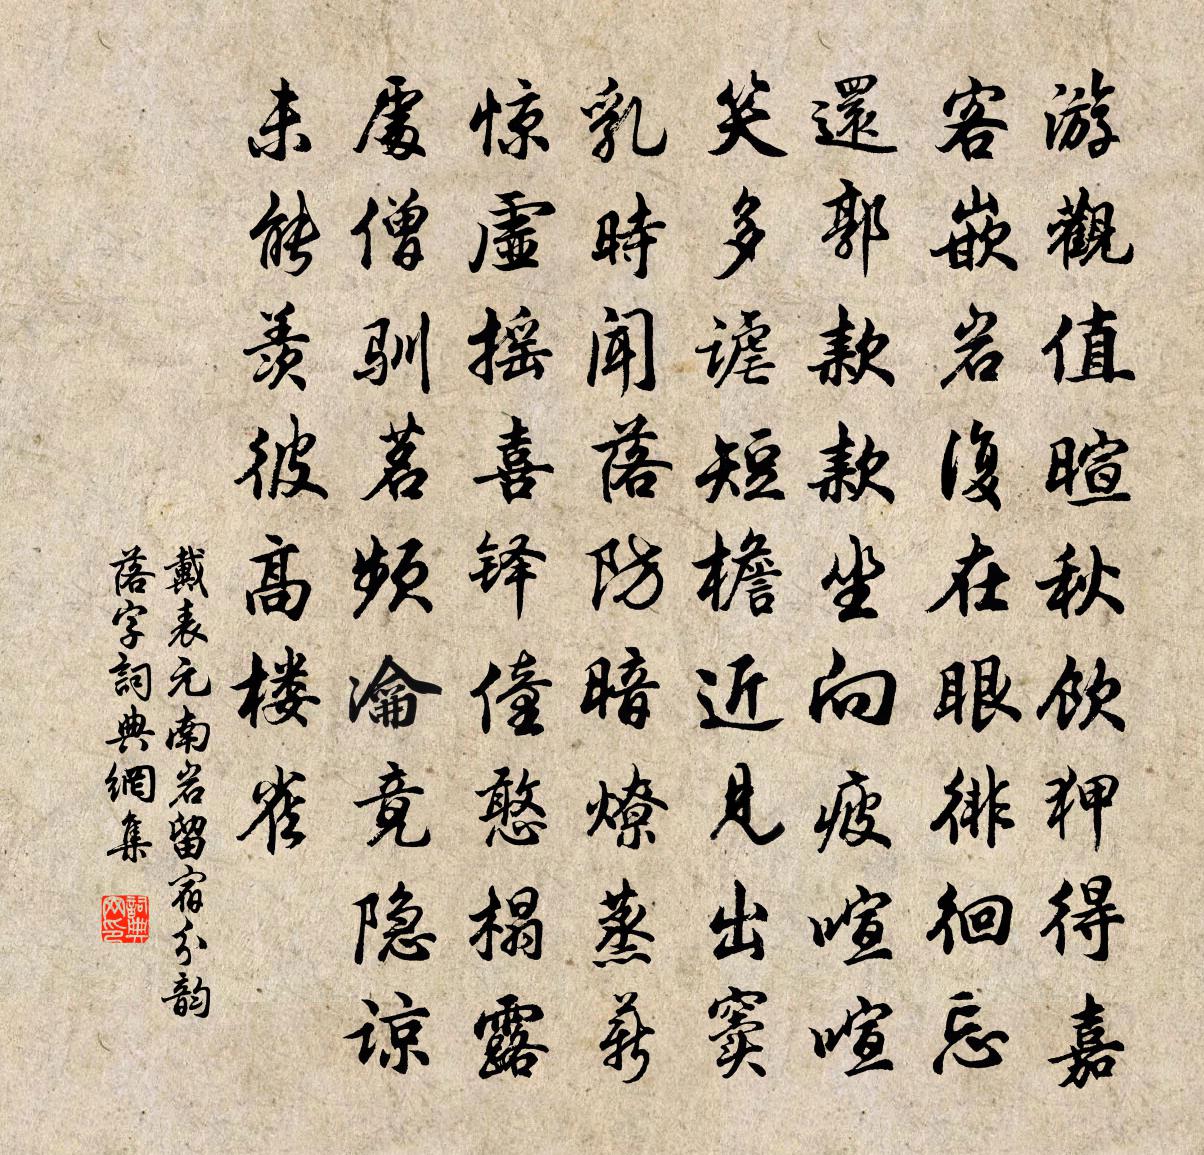 游觀值暄秋飲狎得嘉
客嵌岩復在眼徘徊忘
還郭款款坐向疲喧喧
笑多謔短檐近見出窦
乳時聞落防暗燎蒸薪
惊虛摇喜铎僮憨榻露
處僧馴茗频瀹竟隐谅
未能羨彼高楼雀
戴表元南岩留宿分韵
落字詞典網集
詞典网印